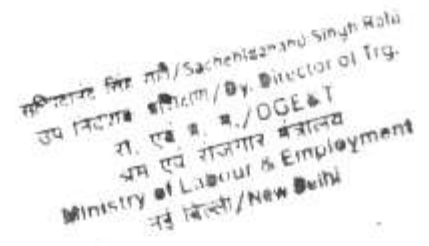 सच्चिदानंद सिंह रावी/Sachchidanand Singh
उप निदेशक प्रशिक्षण/Dy. Director of Trg.
रो. एवं प्र. म./DGE&T
श्रम एवं रोजगार मंत्रालय
Ministry of Labour & Employment
नई दिल्ली/New Delhi